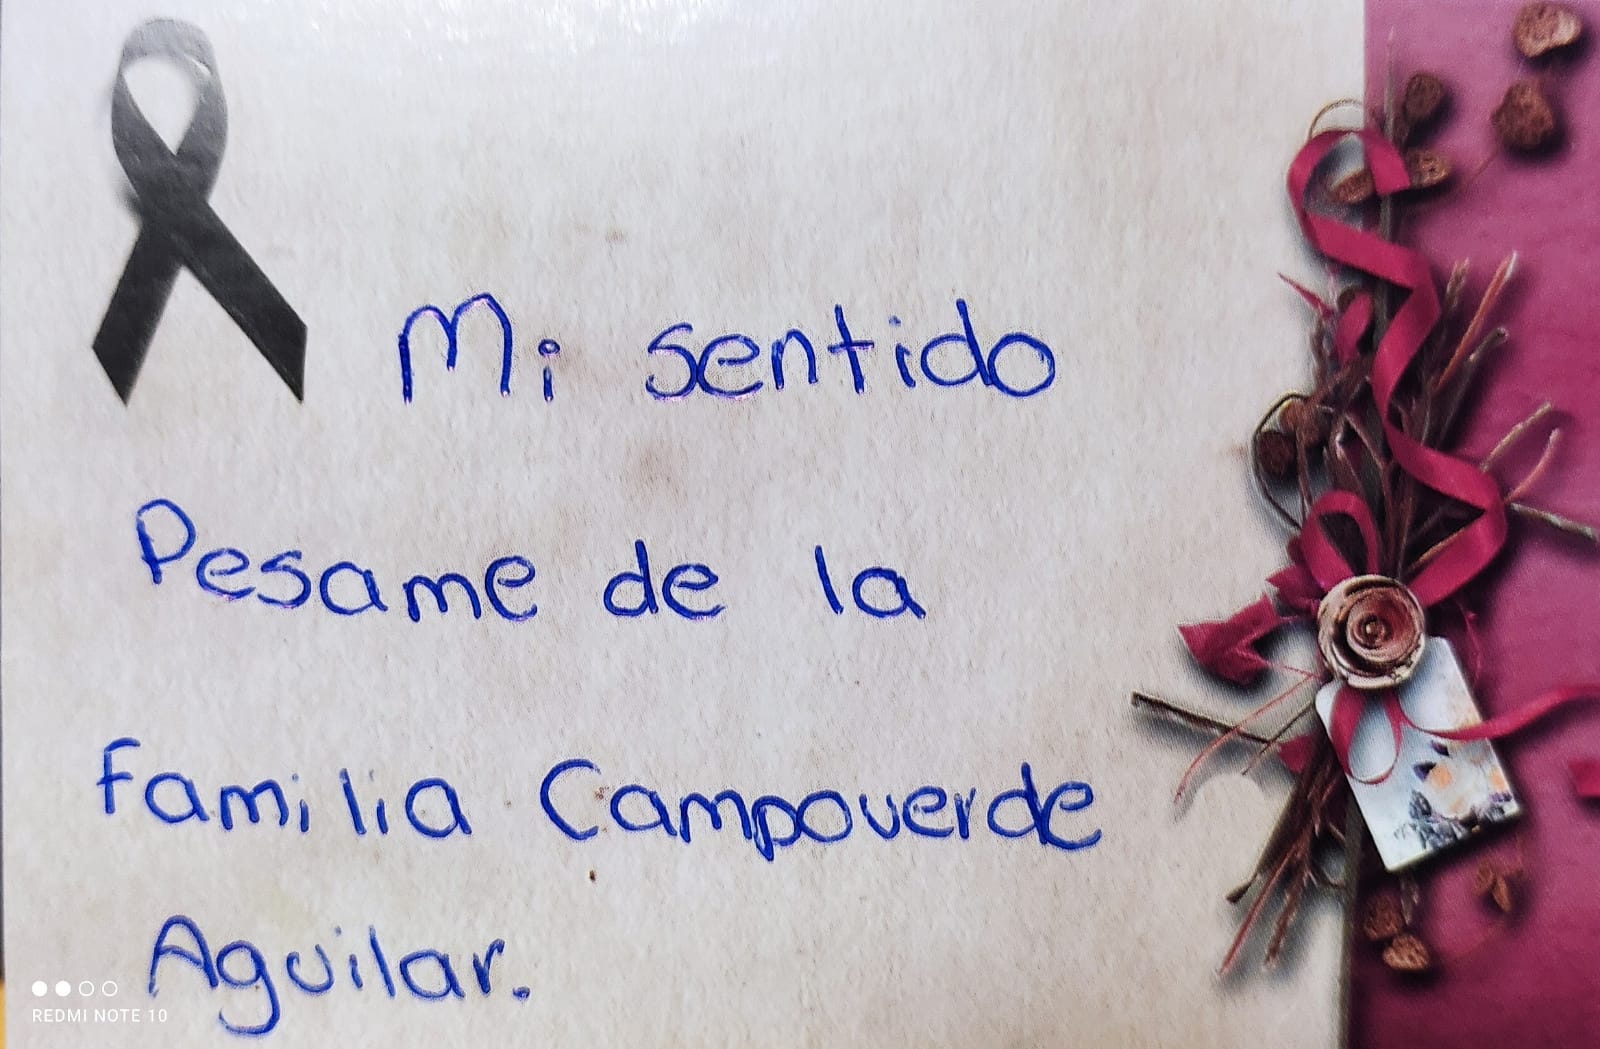 Mi sentido
Pesame de la
familia Campoverde
Aguilar.
REDMI NOTE 10